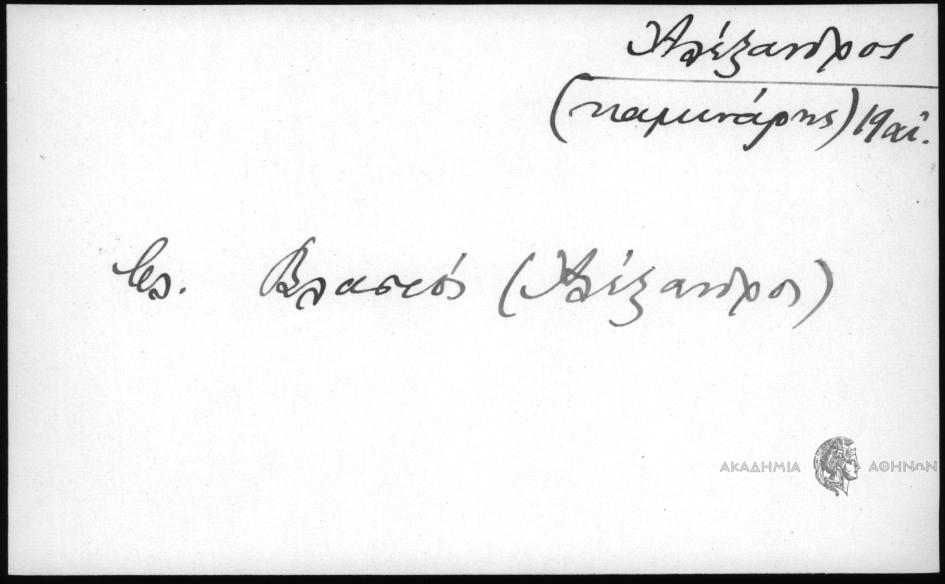 Ἀλέξανδρος
(καμινάρης) 19 αἰ.
Βλ. Βλαστός (Ἀλέξανδρος)
ΑΚΑΔΗΜΙΑ ΑΘΗΝΩΝ